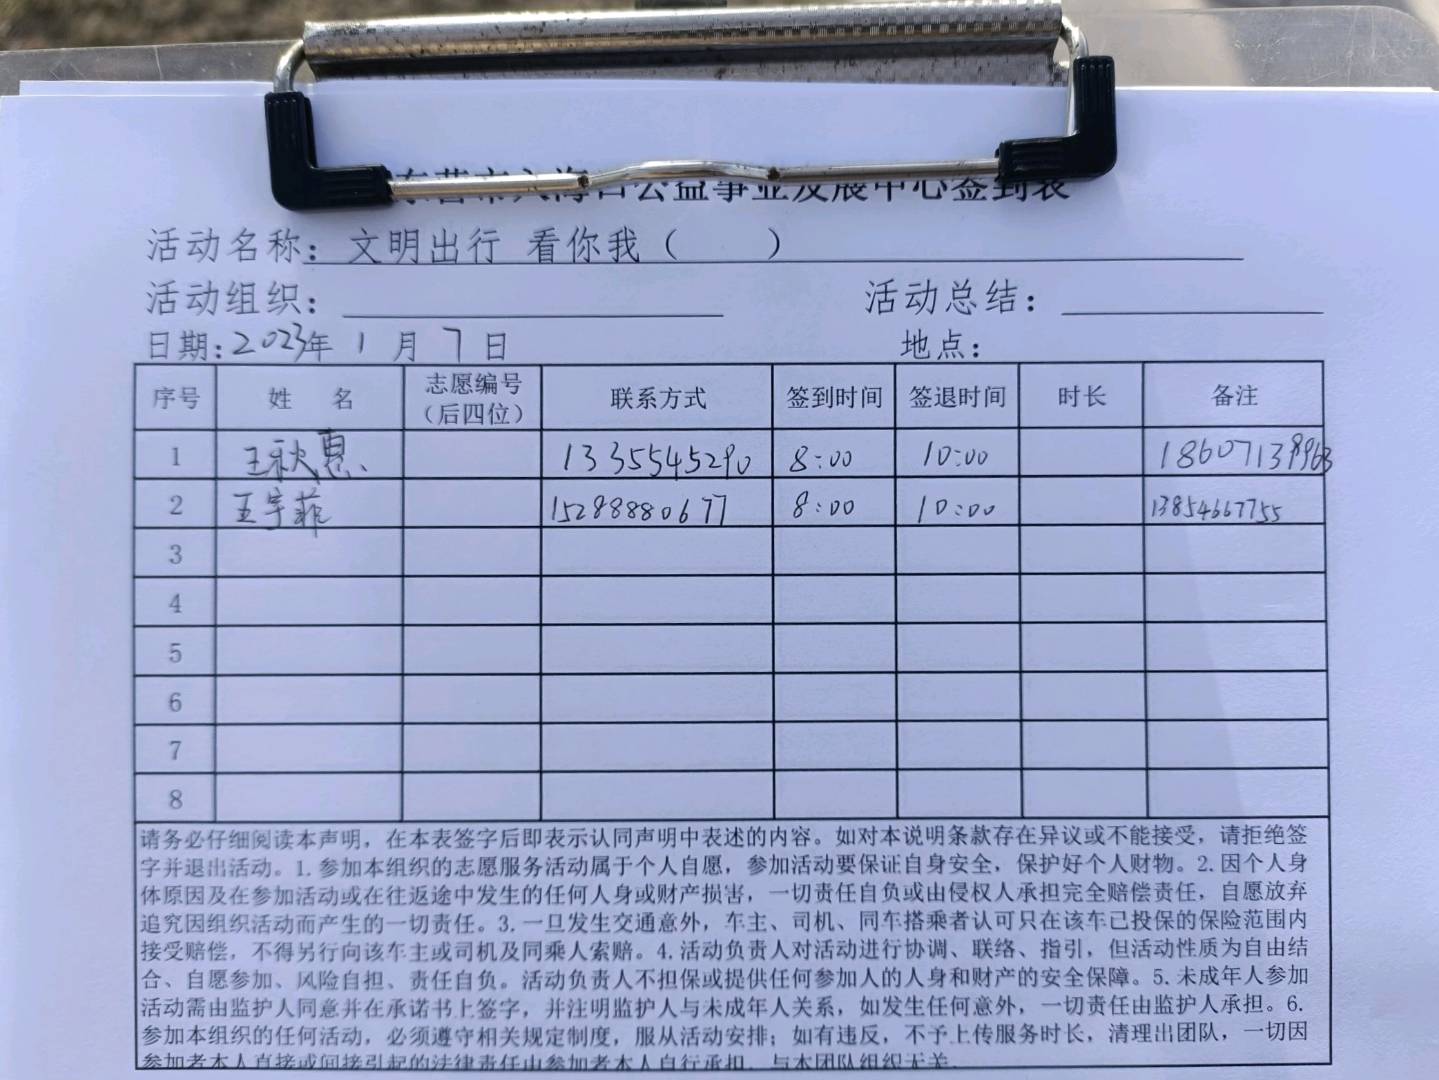 公益事业发展中心签到表
活动名称：文明出行 看你我（ ）
活动组织： 活动总结：
日期：2023年 1 月 7 日 地点：
序号 姓 名 志愿编号（后四位） 联系方式 签到时间 签退时间 时长 备注
1 王秋惠 13355545290 8:00 10:00 18607139963
2 王宇菲 15288880677 8:00 10:00 13854667755
3
4
5
6
7
8
请务必仔细阅读本声明，在本表签字后即表示认同声明中表述的内容。如对本说明条款存在异议或不能接受，请拒绝签
字并退出活动。1.参加本组织的志愿服务活动属于个人自愿，参加活动要保证自身安全，保护好个人财物。2.因个人身
体原因及在参加活动或在往返途中发生的任何人身或财产损害，一切责任自负或由侵权人承担完全赔偿责任，自愿放弃
追究因组织活动而产生的一切责任。3.一旦发生交通意外，车主、司机、同车搭乘者认可只在该车已投保的保险范围内
接受赔偿，不得另行向该车主或司机及同乘人索赔。4.活动负责人对活动进行协调、联络、指引，但活动性质为自由结
合、自愿参加、风险自担、责任自负。活动负责人不担保或提供任何参加人的人身和财产的安全保障。5.未成年人参加
活动需由监护人同意并在承诺书上签字，并注明监护人与未成年人关系，如发生任何意外，一切责任由监护人承担。6.
参加本组织的任何活动，必须遵守相关规定制度，服从活动安排；如有违反，不予上传服务时长，清理出团队，一切因
参加者本人直接或间接引起的法律责任由参加者本人自行承担，与本团队组织无关。